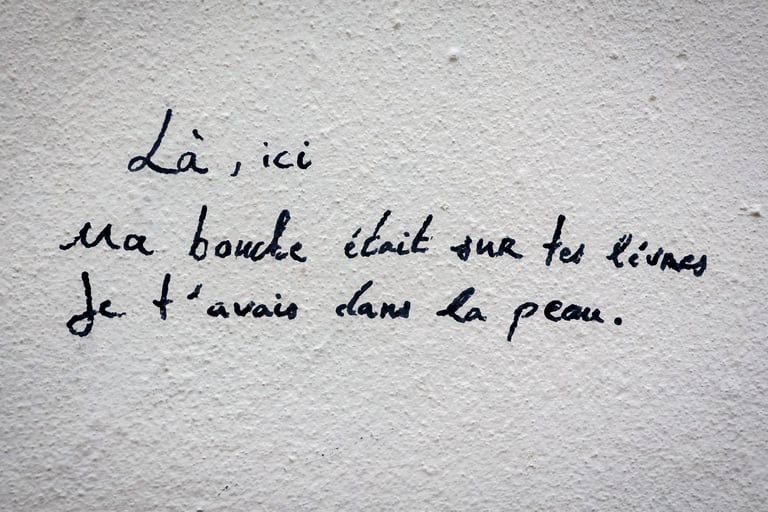 Là, ici
Ma bouche était sur tes lèvres
Je t'avais dans la peau.